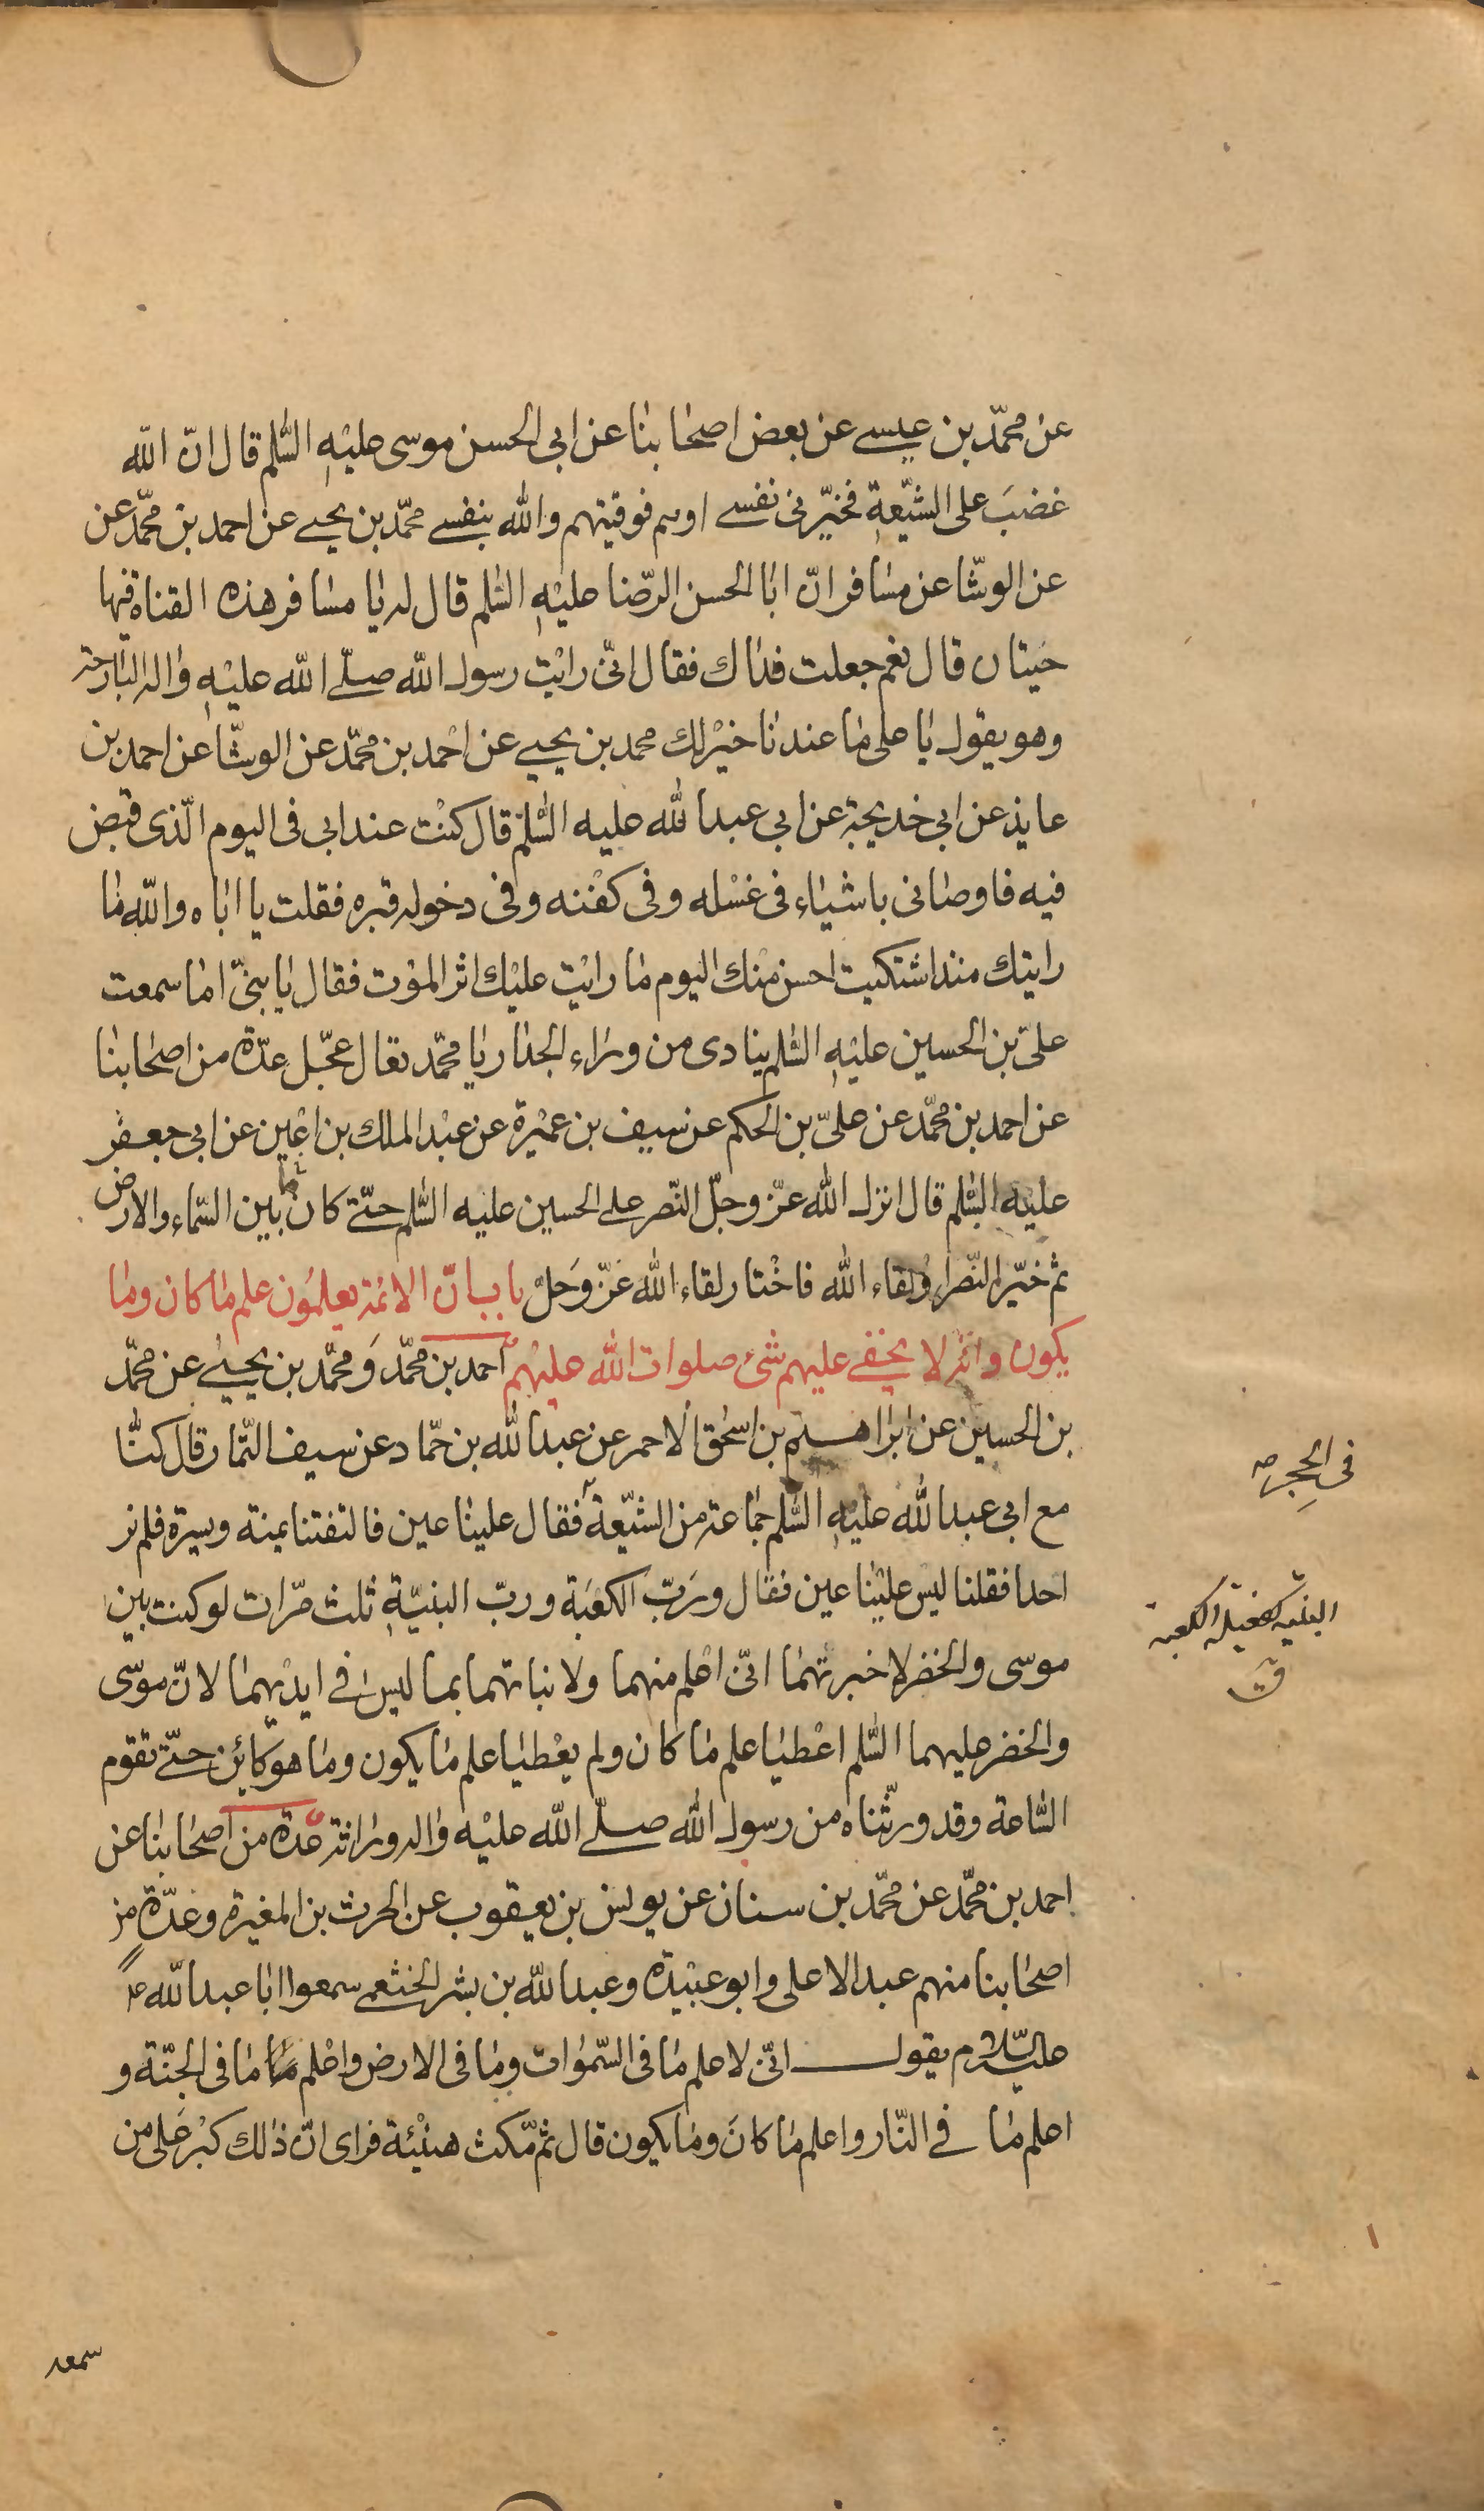 عن محمّد بن عيسى عن بعض اصحابنا عن ابى الحسن موسى عليه السّلم قال انّ اللّه
غضبَ على الشيّعة فخيّرنى نفسى اوهم فوقيتهم واللّه بنفسى محمّد بن يحيى عن احمد بن محمّد عن
عن الوشّا عن مسافر انّ ابا الحسن الرّضا عليه السّلم قال له يا مسافر هذه القناة فيها
حيتان قال نعم جعلت فداك فقال انّى رايت رسول اللّه صلّى اللّه عليه واله البارحة
وهو يقول يا على ما عندنا خير لك محمد بن يحيى عن احمد بن محمّد عن الوشّا عن احمد بن
عايذ عن ابى خديجة عن ابى عبد اللّه عليه السّلم قال كنت عند ابى فى اليوم الّذى قبض
فيه فاوصانى باشياء فى غسله وفى كفنه وفى دخوله قبره فقلت يا اباه واللّه ما
رايتك منذ اشتكيت احسن منك اليوم ما رايت عليك اثر الموت فقال يا بنىّ اما سمعت
علىّ بن الحسين عليه السّلم ينادى من وراء الجدار يا محمّد تعال عجّل عدّة من اصحابنا
عن احمد بن محمّد عن علىّ بن الحكم عن سيف بن عميرة عن عبد الملك بن اعين عن ابى جعفر
عليه السّلم قال انزل اللّه عزّ وجلّ النّصر على الحسين عليه السّلم حتّى كان ما بين السّماء والارض
ثم خيّر النّصر او لقاء اللّه فاختار لقاء اللّه عَزّ وَجلّ باب انّ الائمّة يعلمُون علم ما كان وما
يكون وانّه لا يخفى عليهم شئ صلوات اللّه عليهم احمد بن محمّد وَمحمّد بن يحيى عن محمّد
بن الحسين عن ابراهيم بن اسحق الاحمر عن عبد اللّه بن حمّاد عن سيف التّمار قال كنّا
مع ابى عبد اللّه عليه السّلم جماعة من الشيّعة فقال علينا عين فالتفتنا يمنة ويسرة فلم نر
احدا فقلنا ليس علينا عين فقال ورَبّ الكعبَة وربّ البنيّة ثلث مرّات لو كنت بين
موسى والخضر لاخبرتهما انّى اعلم منهما ولانباتهما بما ليس فى ايديهما لانّ موسى
والخضر عليهما السّلم اعطيا علم ما كان ولم يعطيا علم ما يكون وما هو كائن حتّى تقوم
السّاعة وقد ورثناه من رسول اللّه صلّى اللّه عليه واله وراثة عدّة من اصحابنا عن
احمد بن محمّد عن محمّد بن سنان عن يونس بن يعقوب عن الحرث بن المغيرة وعدّة من
اصحابنا منهم عبد الاعلى وابو عبيدة وعبد اللّه بن بشر الخثعمى سمعوا ابا عبد اللّه
عليه السّلام يقول انّى لاعلم ما فى السّموات وما فى الارض واعلم ما فى الجنّة و
اعلم ما فى النّار واعلم ما كانَ وما يكون قال ثم مّكث هنيئة فراى انّ ذلك كبر على من
فى الحِجر
البنية كغنية الكعبة
ق
سمعه